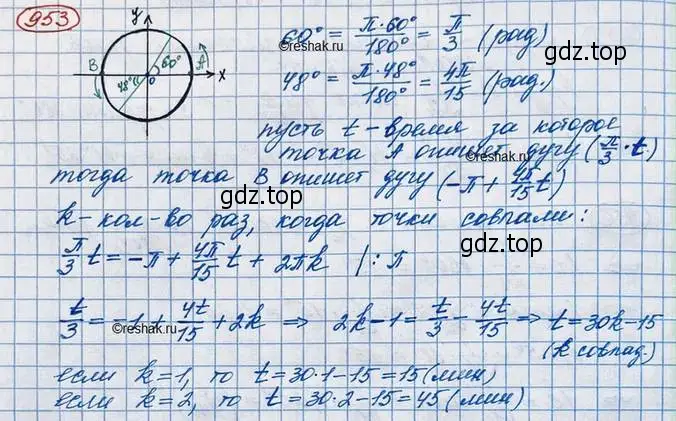 953
y
x
O
A
B
60°
48°
60° = π·60°/180° = π/3 (рад)
©reshak.ru
gdz.top
48° = π·48°/180° = 4π/15 (рад.)
пусть t - время за которое
точка А опишет дугу (π/3·t)
©reshak.ru
тогда точка В опишет дугу (-π + 4π/15 t)
gdz.top
k - кол-во раз, когда точки совпали:
π/3 t = -π + 4π/15 t + 2πk |:π
gdz.top
t/3 = -1 + 4t/15 + 2k ⇒ 2k-1 = t/3 - 4t/15 ⇒ t = 30k-15
©reshak.ru
(k совпад.)
если k=1, то t = 30·1-15 = 15 (мин)
если k=2, то t = 30·2-15 = 45 (мин)
gdz.top